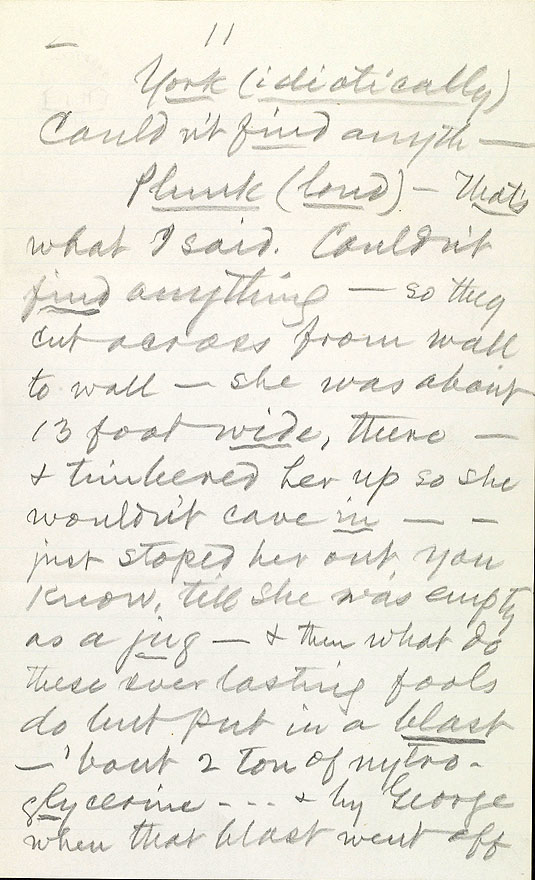 11
York (idiotically)
Couldn't find anyth —
Plunk (loud) — That's
what I said. Couldn't
find anything — so they
cut across from wall
to wall — she was about
13 foot wide, there —
& timbered her up so she
wouldn't cave in — —
just stoped her out, you
know, till she was empty
as a jug — & then what do
these everlasting fools
do but put in a blast
— 'bout 2 ton of nytro-
glycerine - - - & by George
when that blast went off